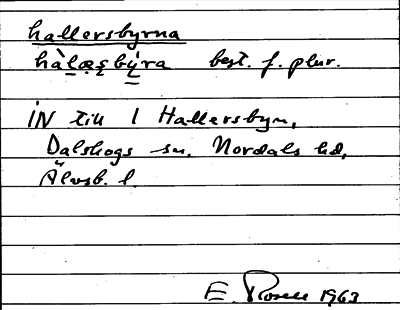 hallersbyrna
hàlæsbýra best. f. plur.
IN till 1 Hallersbyn,
Dalskogs sn. Nordals hd,
Älvsb. l.
E. Rosell 1963